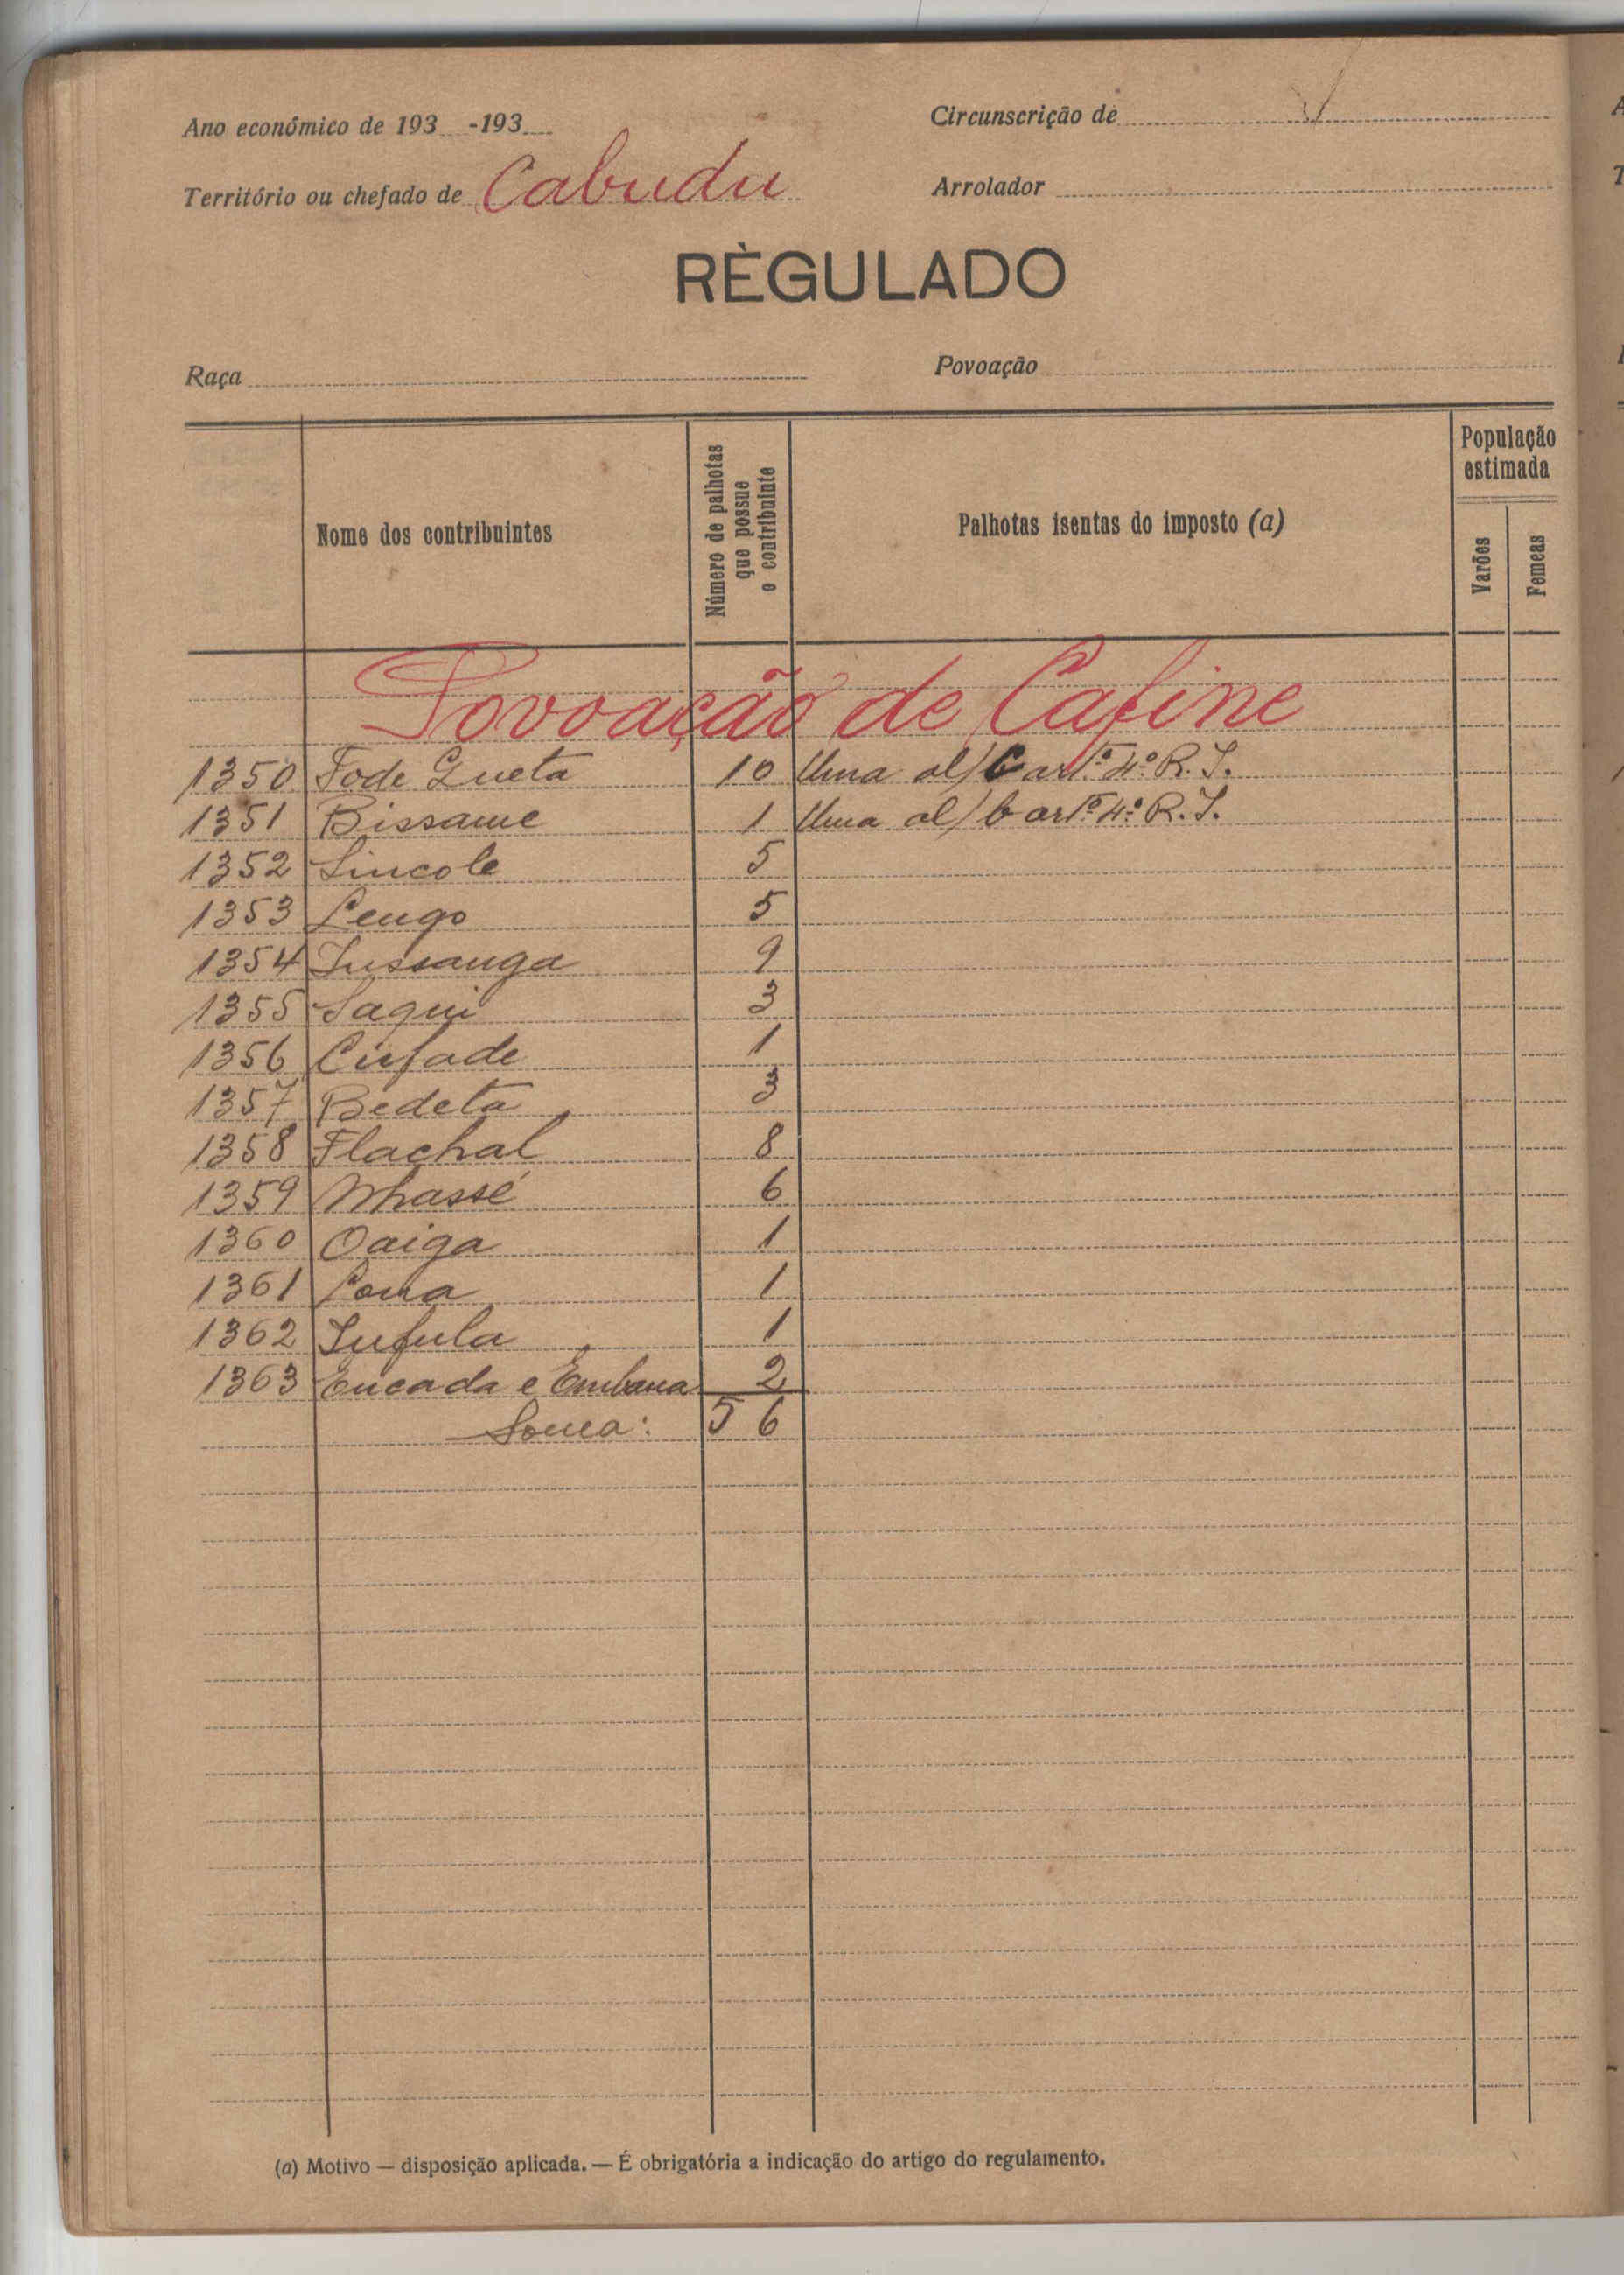 Ano económico de 193 -193
Circunscrição de
Território ou chefado de Cabudu
Arrolador
RÈGULADO
Raça
Povoação
Nome dos contribuintes
Número de palhotas que possue o contribuinte
Palhotas isentas do imposto (a)
População estimada
Varões
Femeas
Povoação de Cafine
1350 Fode Queta 10 Uma al/ C artº 4º R. I.
1351 Bissame 1 Uma al/ b artº 4º R. I.
1352 Sincole 5
1353 Lengo 5
1354 Jussanga 9
1355 Saqui 3
1356 Cufade 1
1357 Bedeta 3
1358 Flachal 8
1359 Nhassé 6
1360 Oaiga 1
1361 1
1362 Jufula 1
1363 Encada e Embana 2
Soma: 56
(a) Motivo — disposição aplicada. — É obrigatória a indicação do artigo do regulamento.